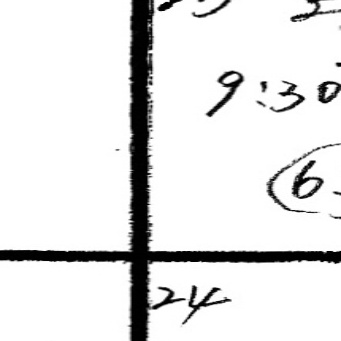 9:30
(6
24